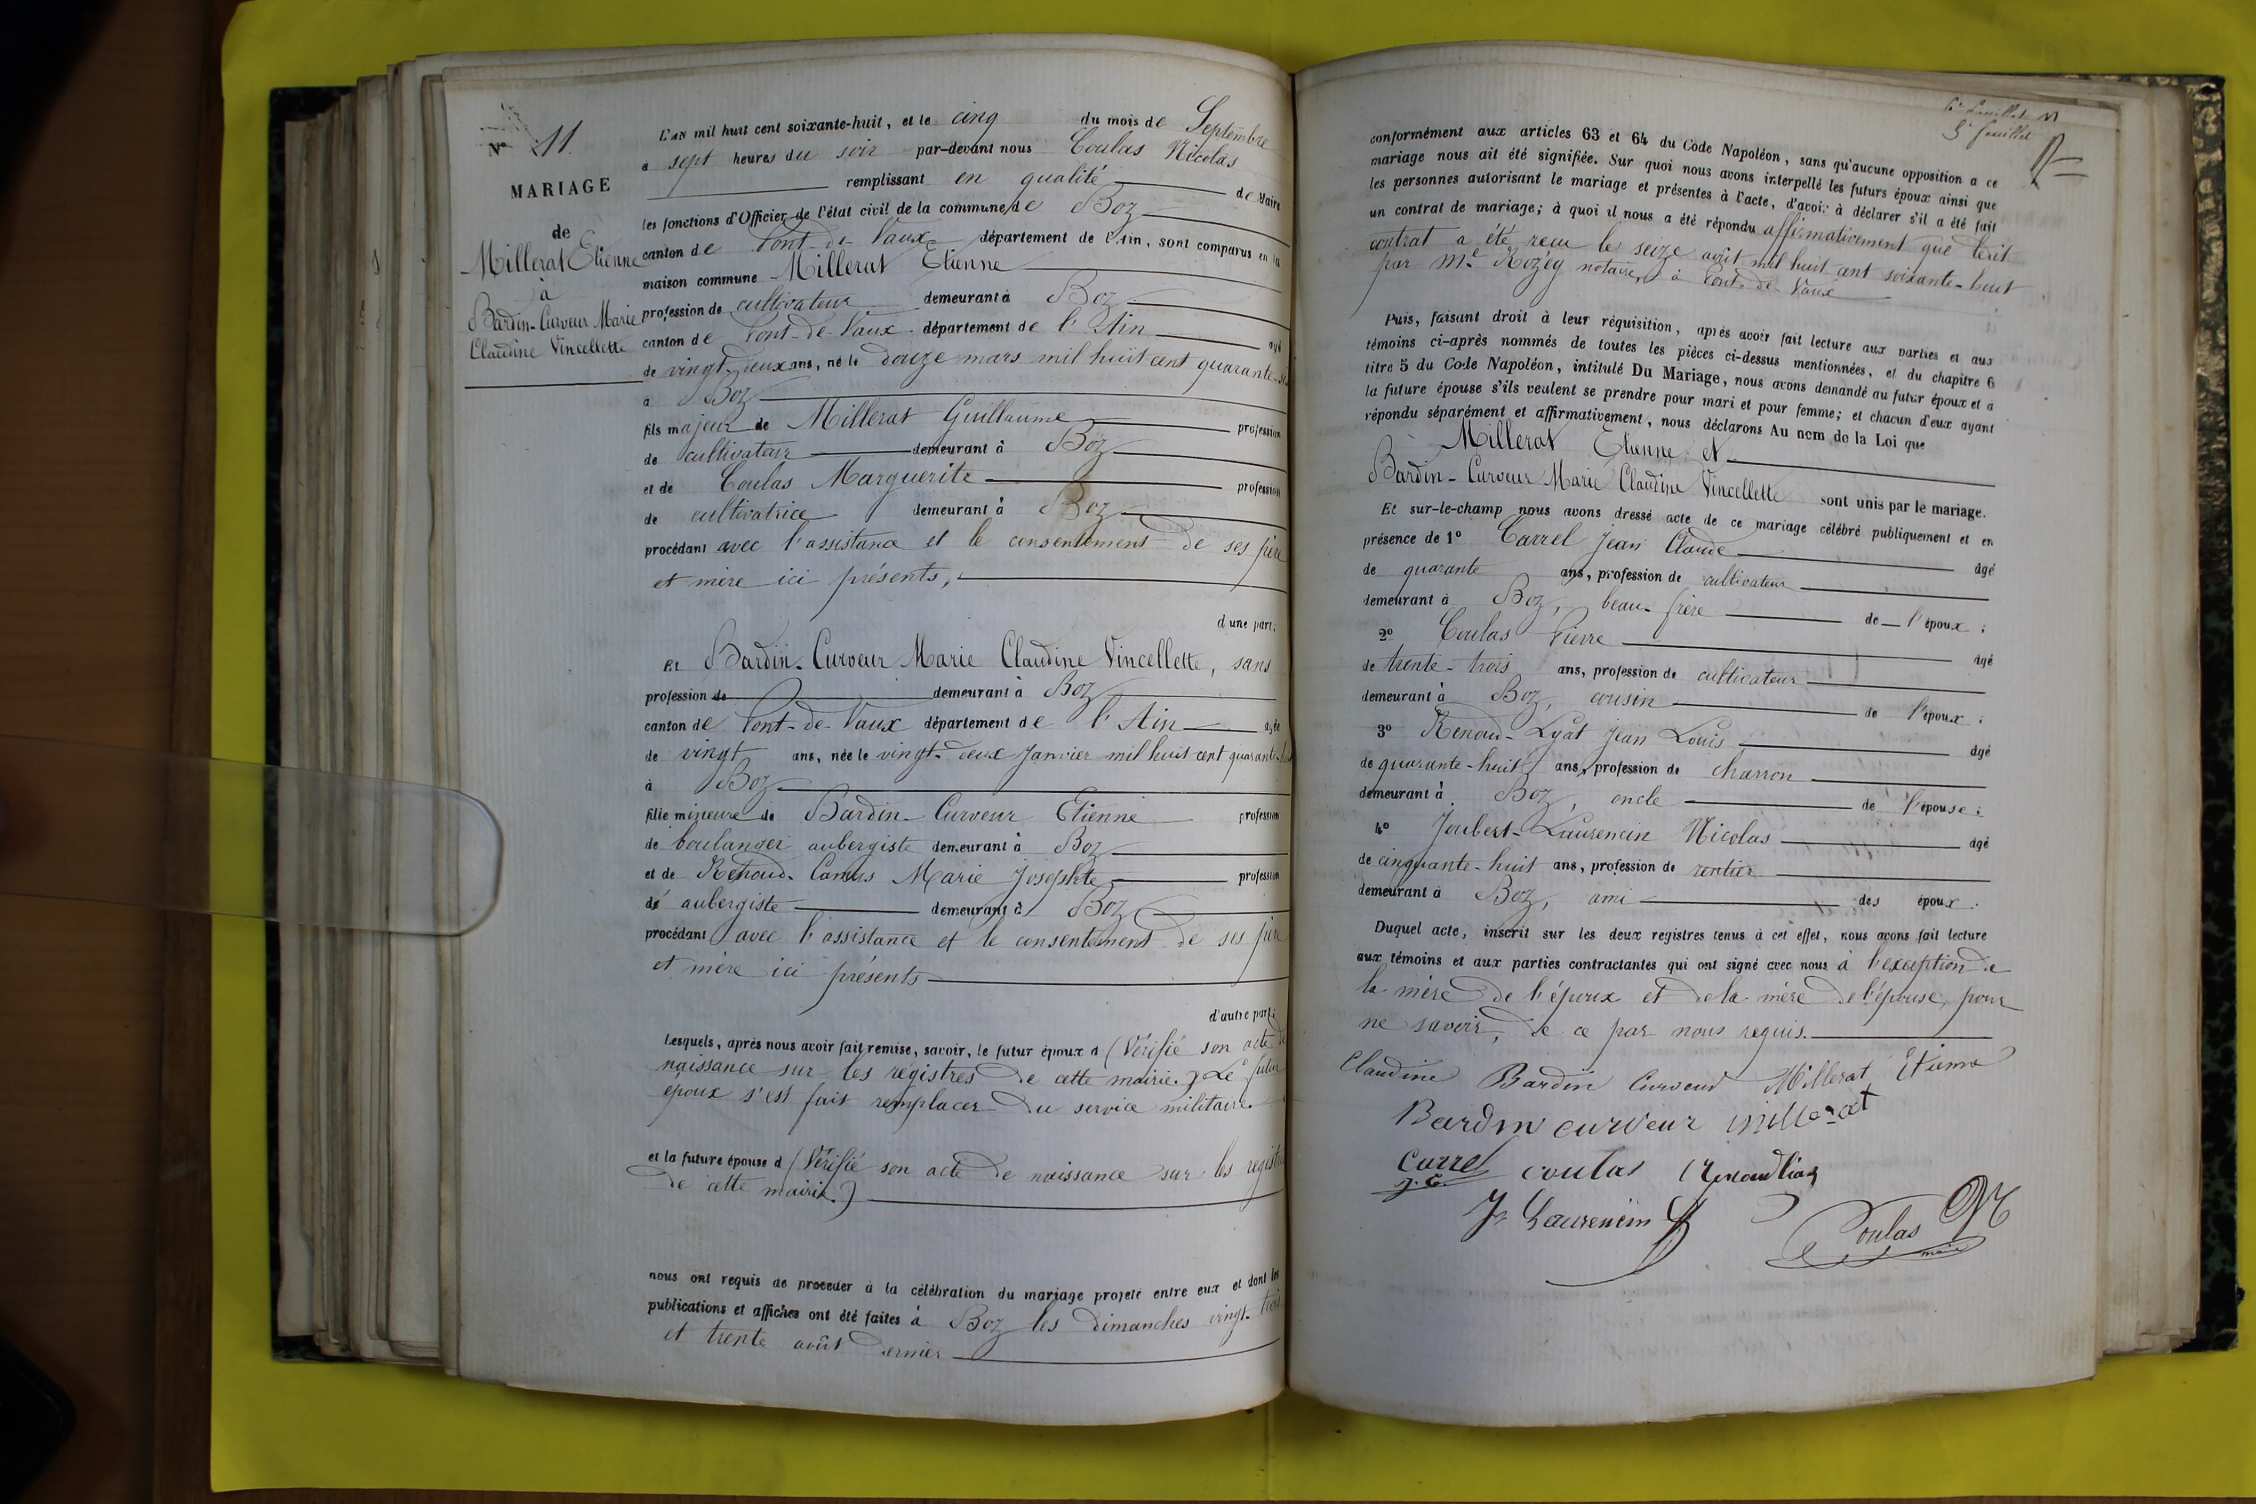 N° 11
MARIAGE
de
Millerat Etienne
à
Bardin-Curveur Marie
Claudine Vincellette
L'an mil huit cent soixante-huit, et le cinq du mois de Septembre
a sept heures du soir par-devant nous Coulas Nicolas
remplissant en qualité de Maire
les fonctions d'Officier de l'état civil de la commune de Boz
canton de Pont-de-Vaux département de l'Ain, sont comparus en la
maison commune Millerat Etienne
profession de cultivateur demeurant à Boz
canton de Pont-de-Vaux département de l'Ain agé
de vingt-deux ans, né le douze mars mil huit cent quarante-six
à Boz
fils majeur de Millerat Guillaume profession
de cultivateur demeurant à Boz
et de Coulas Marguerite profession
de cultivatrice demeurant à Boz
procédant avec l'assistance et le consentement de ses père
et mère ici présents,
d'une part;
Et Bardin-Curveur Marie Claudine Vincellette, sans
profession de demeurant à Boz
canton de Pont-de-Vaux département de l'Ain agée
de vingt ans, née le vingt-deux Janvier mil huit cent quarante-huit
à Boz
fille mineure de Bardin-Curveur Etienne profession
de boulanger aubergiste demeurant à Boz
et de Renoud-Camus Marie Josephte profession
de aubergiste demeurant à Boz
procédant avec l'assistance et le consentement de ses père
et mère ici présents
d'autre part;
Lesquels, après nous avoir fait remise, savoir, le futur époux d (Vérifié son acte de
naissance sur les registres de cette mairie.) Le futur
époux s'est fait remplacer du service militaire.
et la future épouse d (Vérifié son acte de naissance sur les registres
de cette mairie.)
nous ont requis de proceder à la célébration du mariage projeté entre eux et dont les
publications et affiches ont été faites à Boz les dimanches vingt-trois
et trente août dernier
6e feuillet
5e feuillet
conformément aux articles 63 et 64 du Code Napoléon, sans qu'aucune opposition a ce
mariage nous ait été signifiée. Sur quoi nous avons interpellé les futurs époux ainsi que
les personnes autorisant le mariage et présentes à l'acte, d'avoir à déclarer s'il a été fait
un contrat de mariage; à quoi il nous a été répondu affirmativement que ledit
contrat a été reçu le seize août mil huit cent soixante-huit
par Me Rozey notaire, à Pont-de-Vaux
Puis, faisant droit à leur réquisition, après avoir fait lecture aux parties et aux
témoins ci-après nommés de toutes les pièces ci-dessus mentionnées, et du chapitre 6
titre 5 du Code Napoléon, intitulé Du Mariage, nous avons demandé au futur époux et a
la future épouse s'ils veulent se prendre pour mari et pour femme; et chacun d'eux ayant
répondu séparément et affirmativement, nous déclarons Au nom de la Loi que
Millerat Etienne et
Bardin-Curveur Marie Claudine Vincellette sont unis par le mariage.
Et sur-le-champ nous avons dressé acte de ce mariage célébré publiquement et en
présence de 1° Carrel Jean Claude âgé
de quarante ans, profession de cultivateur
demeurant à Boz, beau-frère de l'époux;
2° Coulas Pierre âgé
de trente-trois ans, profession de cultivateur
demeurant à Boz, cousin de l'époux;
3° Renoud-Lyat Jean Louis âgé
de quarante-huit ans, profession de charron
demeurant à Boz, oncle de l'épouse;
4° Joubert-Laurencin Nicolas âgé
de cinquante-huit ans, profession de rentier
demeurant à Boz, ami des époux.
Duquel acte, inscrit sur les deux registres tenus à cet effet, nous avons fait lecture
aux témoins et aux parties contractantes qui ont signé avec nous à l'exception de
la mère de l'époux et de la mère de l'épouse, pour
ne savoir, de ce par nous requis.
Claudine Bardin Curveur Millerat Etienne
Bardin curveur Millerat
Carrel J. C. coulas Renoud liat
Jt Laurencin
Coulas Nc
maire